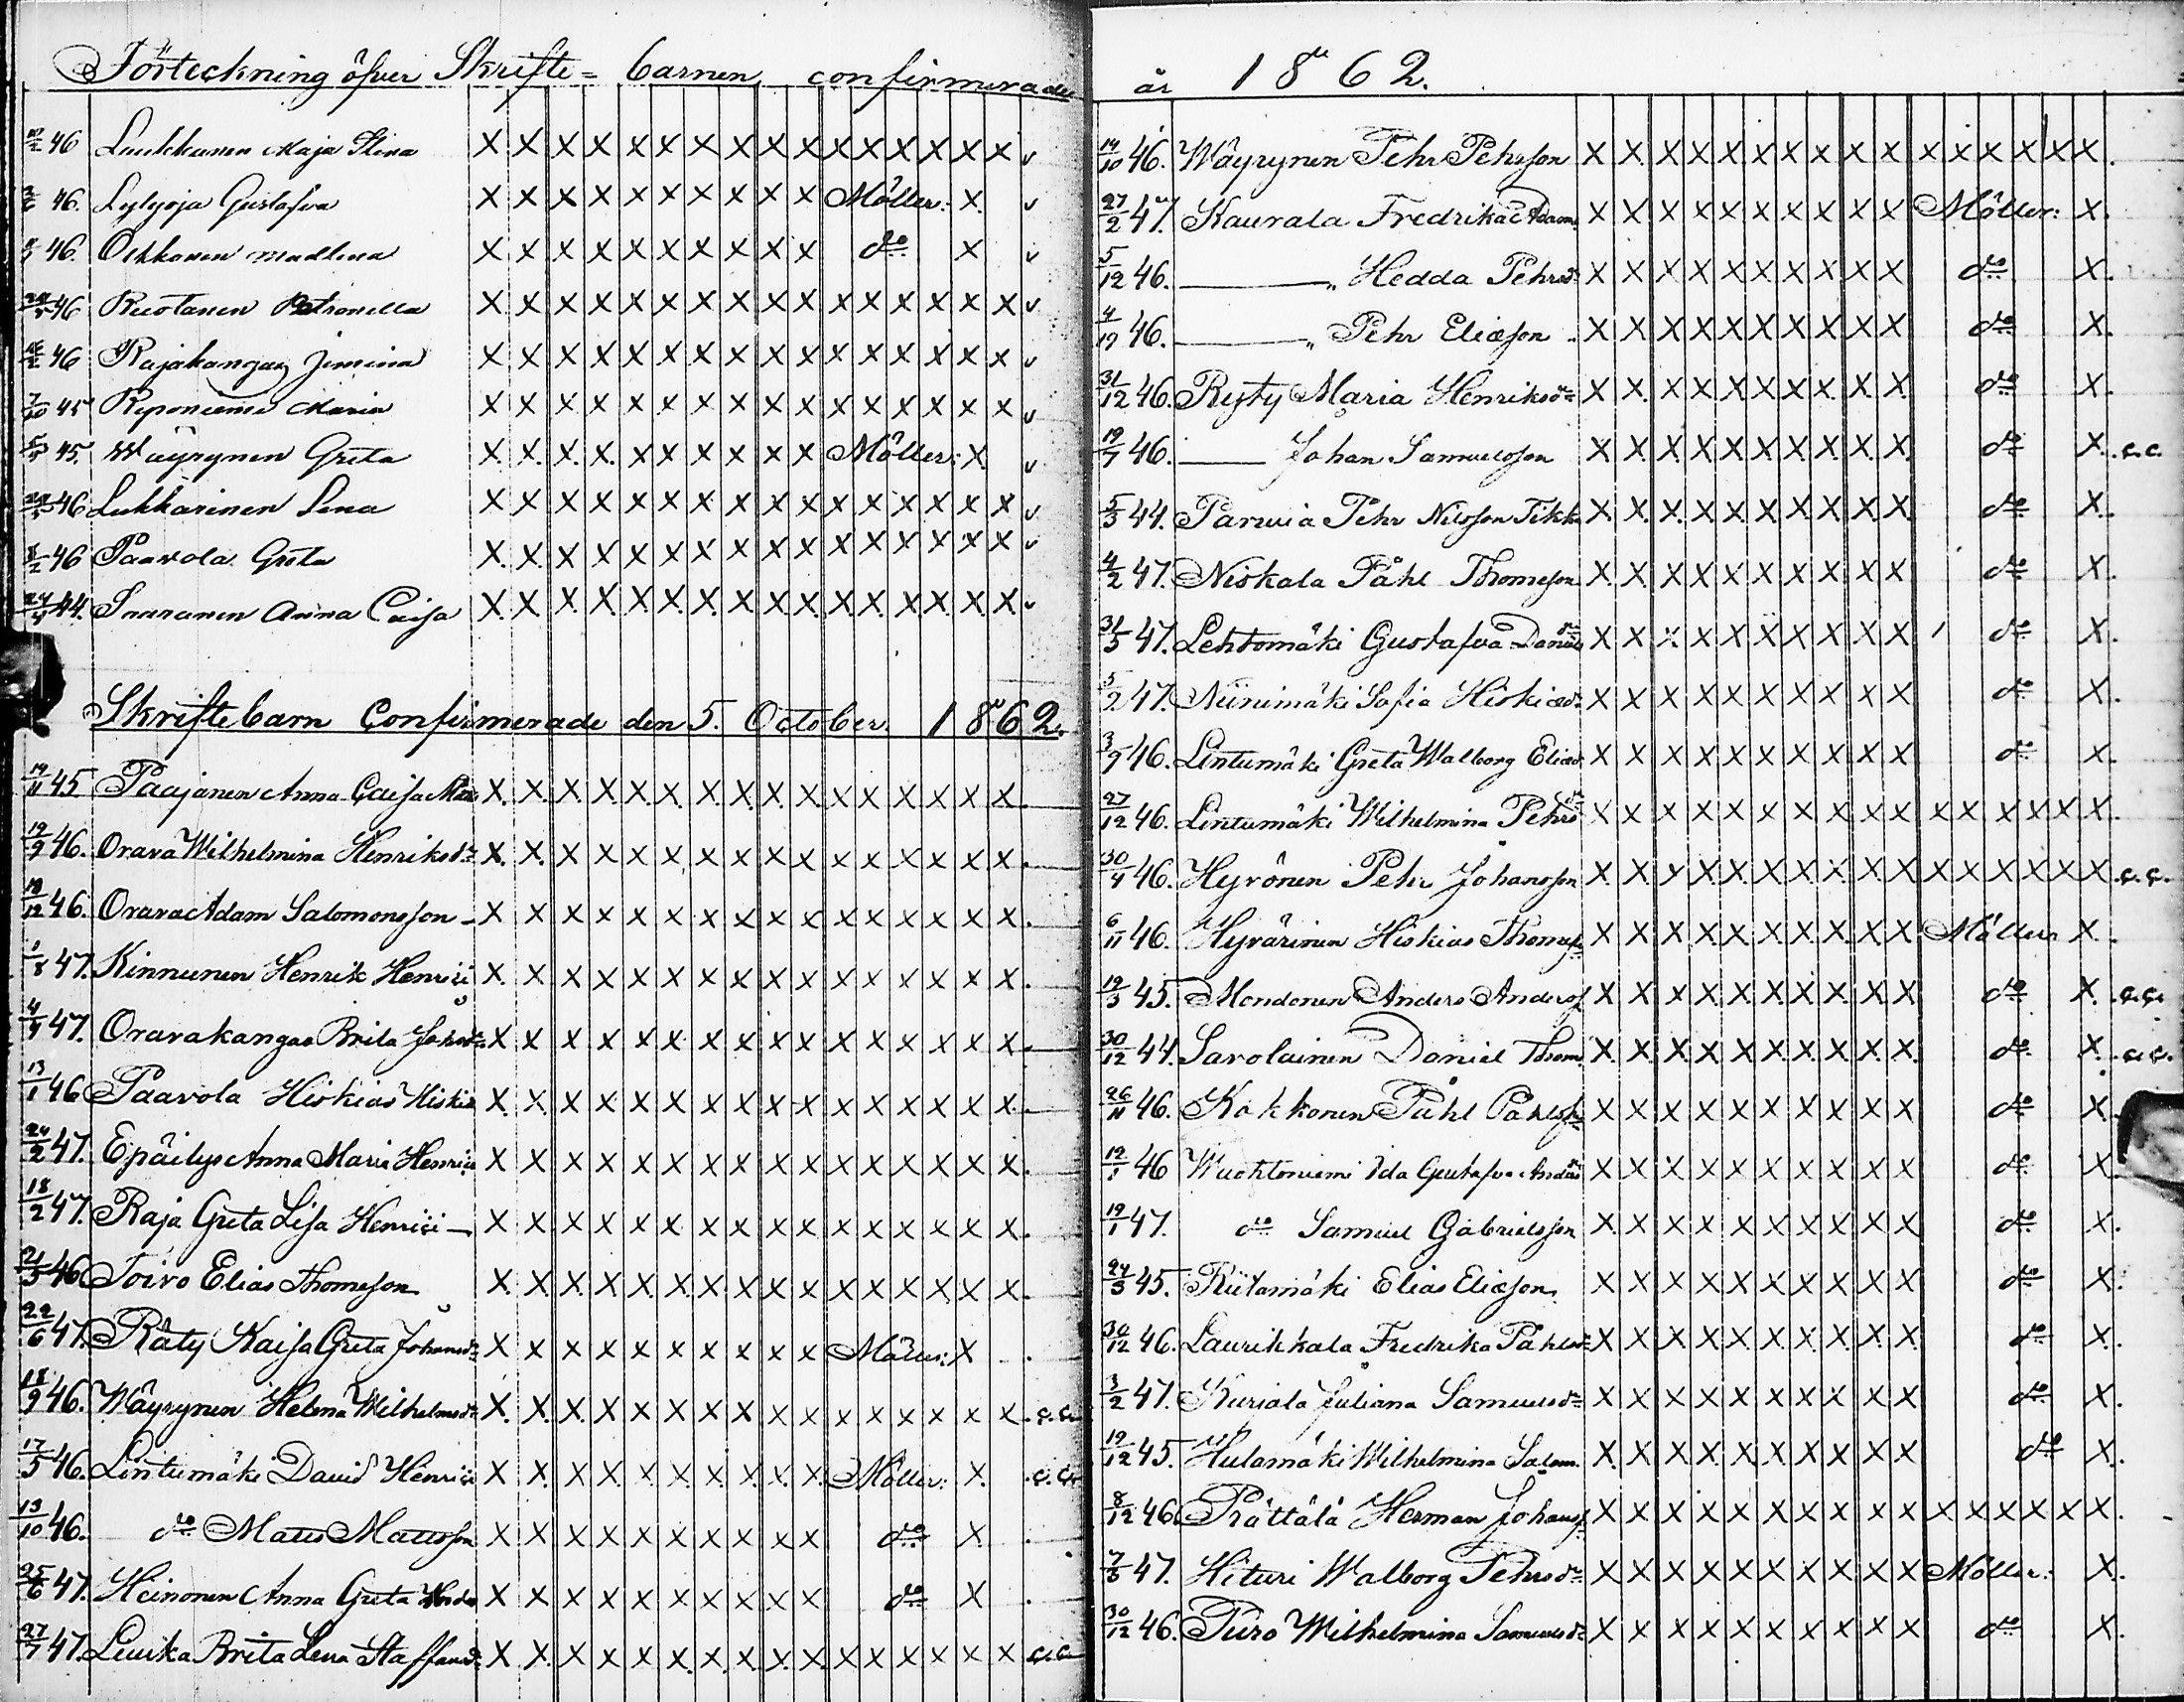 Förteckning öfver Skrifte- barnen confirmerade
46 Luukkunen Maja Stina X X X X X X X X X X X X X X X X v
46. Lylyoja Gustafva X X X X X X X X X X Möller: X. v
46. Ockkonen Madlena X X X X X X X X X X do X v
46 Ruotanen Petronella X X X X X X X X X X X X X X X X v
46 Rajakangas X X X X X X X X X X X X X X X X v
7/10 45 Reponiemi Maria X X X X X X X X X X X X X X X X v
45. Wäyrynen Greta X X X X X X X X X X Möller: X v
46 Lukkarinen Lena X X X X X X X X X X X X X X X X v
46 Paavola Greta X X X X X X X X X X X X X X X X v
44. Anna Caisa X X X X X X X X X X X X X X X X v
Skriftebarn Confirmerade den 5. October. 1862.
19/11 45 Paajanen Anna Caisa X X X X X X X X X X X X X X X X
19/9 46. Orava Wilhelmina Henriksdr X X X X X X X X X X X X X X X X.
18/12 46. Orava Adam Salomonsson X X X X X X X X X X X X X X X X.
1/8 47. Kinnunen Henrik Henrici X X X X X X X X X X X X X X X X.
47. Oravakangas Brita Johsdr X X X X X X X X X X X X X X X X.
13/1 46 Paavola Hiskias Hiskia X X X X X X X X X X X X X X X X.
24/2 47. Epäilys Anna Maria Henrici X X X X X X X X X X X X X X X X.
18/2 47. Raja Greta Lisa Henrici X X X X X X X X X X X X X X X X.
21/5 46 Toivo Elias Thomeson X X X X X X X X X X X X X X X X.
22/6 47. Räty Kaisa Greta Johansdr X X X X X X X X X X Möller: X .
18/9 46. Wäyrynen Helena Wilhelmsdr X X X X X X X X X X X X X X X X. c.c.
17/5 46. Lintumäki David Henrici X X X X X X X X X X Möller: X. c.c.
13/10 46. do Matts Mattsson X X X X X X X X X X do X .
25/6 47. Heinonen Anna Greta X X X X X X X X X X do X .
27/7 47. Luuka Brita Lena Staffansdr X X X X X X X X X X X X X X X X c.c.
år 1862.
14/10 46. Wäyrynen Pehr Pehrsson X X X X X X X X X X X X X X X X.
27/2 47. Kaurala Fredrika Adam X X X X X X X X X X Möller: X.
5/12 46. " Hedda Pehrsdr X X X X X X X X X X do X.
46. " Pehr Eliæson X X X X X X X X X X do X.
31/12 46. Ryty Maria Henriksdr X X X X X X X X X X do X.
19/7 46. Johan Samuelsson X X X X X X X X X X do X. c.c.
5/3 44. Parvia Pehr Nilsson Tikka X X X X X X X X X X do X.
4/2 47. Niskala Påhl Thomeson X X X X X X X X X X do X.
31/5 47. Lehtomäki Gustafva X X X X X X X X X X do X.
47. Niinimäki Sofia Hiskiædr X X X X X X X X X X do X.
3/9 46. Lintumäki Greta Walborg Eliædr X X X X X X X X X X do X.
27/12 46. Lintumäki Wilhelmina Pehrsdr X X X X X X X X X X X X X X X X.
30/4 46. Hyvönen Pehr Johansson X X X X X X X X X X X X X X X X. c.c.
6/11 46. Hyvärinen Hiskias Thomeson X X X X X X X X X X Möller X.
19/3 45. Mondonen Anders Andersson X X X X X X X X X X do X. c.c.
30/12 44. Savolainen Daniel Thom. X X X X X X X X X X do X. c.c.
26/11 46. Kokkonen Påhl Påhlsson X X X X X X X X X X do X.
12/1 46 Wuohtoniemi Ida Gustafva X X X X X X X X X X do X
19/1 47. do Samuel Gabrielsson X X X X X X X X X X do X.
24/3 45. Riitamäki Elias Eliæson X X X X X X X X X X do X.
30/12 46. Laurikkala Fredrika Påhlsdr X X X X X X X X X X do X.
3/2 47. Kurjala Juliana Samuelsdr X X X X X X X X X X do X.
19/12 45. Hulamäki Wilhelmina Salom. X X X X X X X X X X do X.
8/12 46 Prättälä Herman Johansson X X X X X X X X X X X X X X X X.
7/3 47. Hituri Walborg Pehrsdr X X X X X X X X X X Möller: X.
30/12 46. Puro Wilhelmina Samuelsdr X X X X X X X X X X do X.